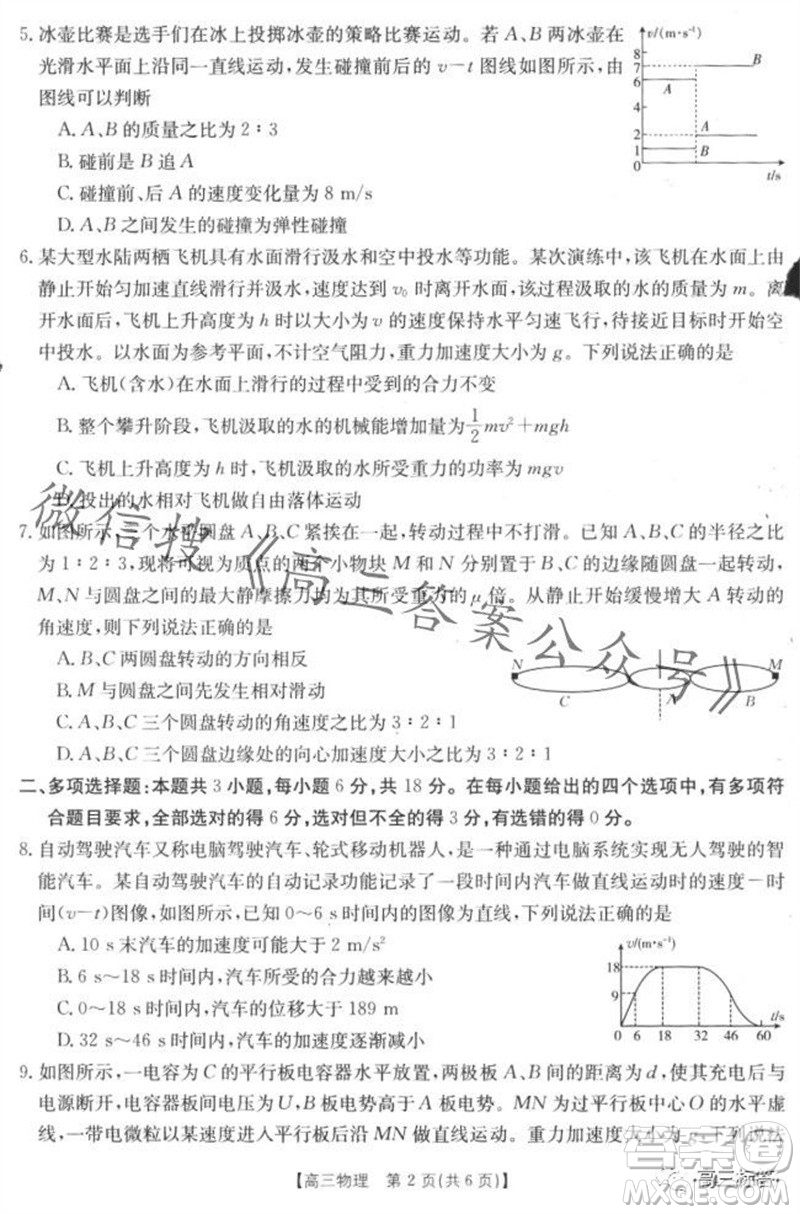 5. 冰壶比赛是选手们在冰上投掷冰壶的策略比赛运动。若 A、B 两冰壶在
光滑水平面上沿同一直线运动，发生碰撞前后的 v－t 图线如图所示，由
图线可以判断
A. A、B 的质量之比为 2∶3
B. 碰前是 B 追 A
C. 碰撞前、后 A 的速度变化量为 8 m/s
D. A、B 之间发生的碰撞为弹性碰撞
v/(m·s⁻¹)
8
7
6
4
2
1
0
A
B
A
B
t/s
6. 某大型水陆两栖飞机具有水面滑行汲水和空中投水等功能。某次演练中，该飞机在水面上由
静止开始匀加速直线滑行并汲水，速度达到 v₀ 时离开水面，该过程汲取的水的质量为 m。离
开水面后，飞机上升高度为 h 时以大小为 v 的速度保持水平匀速飞行，待接近目标时开始空
中投水。以水面为参考平面，不计空气阻力，重力加速度大小为 g。下列说法正确的是
A. 飞机(含水)在水面上滑行的过程中受到的合力不变
B. 整个攀升阶段，飞机汲取的水的机械能增加了 1/2 mv²＋mgh
C. 飞机上升高度为 h 时，飞机的水所受重力的功率为 mgv
D. 投出的水相对飞机做自由落体运动
7. 如图所示，三个水平圆盘 A、B、C 紧挨在一起，转动过程中不打滑。已知 A、B、C 的半径之比
为 1∶2∶3，现将可视为质点的两个小物块 M 和 N 分别置于 B、C 的边缘随圆盘一起转动，
M、N 与圆盘之间的最大静摩擦力均为其所受重力的 μ 倍。从静止开始缓慢增大 A 转动的
角速度，则下列说法正确的是
A. B、C 两圆盘转动的方向相反
B. M 与圆盘之间先发生相对滑动
C. A、B、C 三个圆盘转动的角速度之比为 3∶2∶1
D. A、B、C 三个圆盘边缘处的向心加速度大小之比为 3∶2∶1
N
M
C
A
B
二、多项选择题：本题共 3 小题，每小题 6 分，共 18 分。在每小题给出的四个选项中，有多项符
合题目要求，全部选对的得 6 分，选对但不全的得 3 分，有选错的得 0 分。
8. 自动驾驶汽车又称电脑驾驶汽车、轮式移动机器人，是一种通过电脑系统实现无人驾驶的智
能汽车。某自动驾驶汽车的自动记录功能记录了一段时间内汽车做直线运动时的速度－时
间(v－t)图像，如图所示，已知 0～6 s 时间内的图像为直线，下列说法正确的是
A. 10 s 末汽车的加速度可能大于 2 m/s²
B. 6 s～18 s 时间内，汽车所受的合力越来越小
C. 0～18 s 时间内，汽车的位移大于 189 m
D. 32 s～46 s 时间内，汽车的加速度逐渐减小
v/(m·s⁻¹)
18
9
0 6 18 32 46 60
t/s
9. 如图所示，一电容为 C 的平行板电容器水平放置，两极板 A、B 间的距离为 d，充满电后与
电源断开，电容器板间电压为 U，B 板电势高于 A 板电势。MN 为过平行板中心 O 的水平虚
线，一带电微粒以某速度进入平行板后沿 MN 做直线运动。重力加速度大小为 g，下列说法
【高三物理 第 2 页(共 6 页)】
微信搜《高三答案公众号》
答案圈
MXQE.COM
高三标答